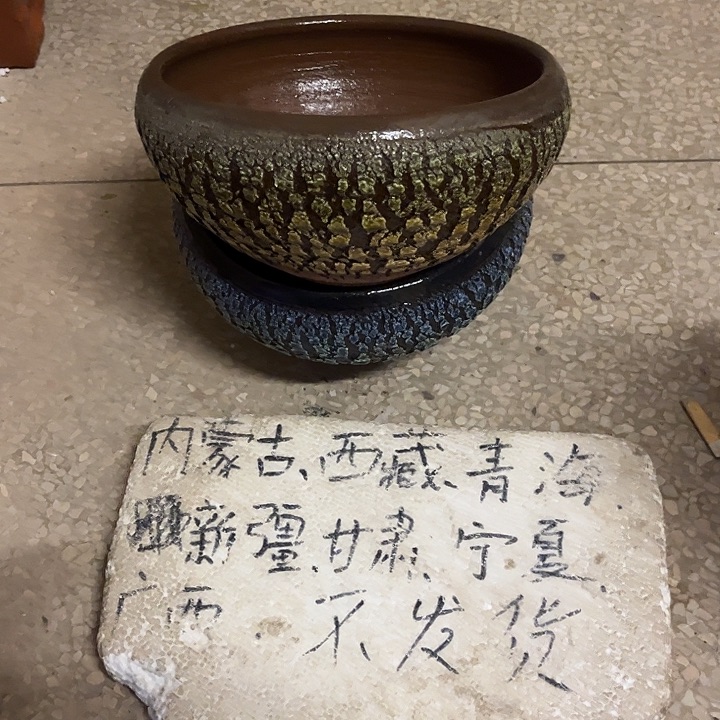 内蒙古、西藏、青海
新疆、甘肃、宁夏、
广西、不发货